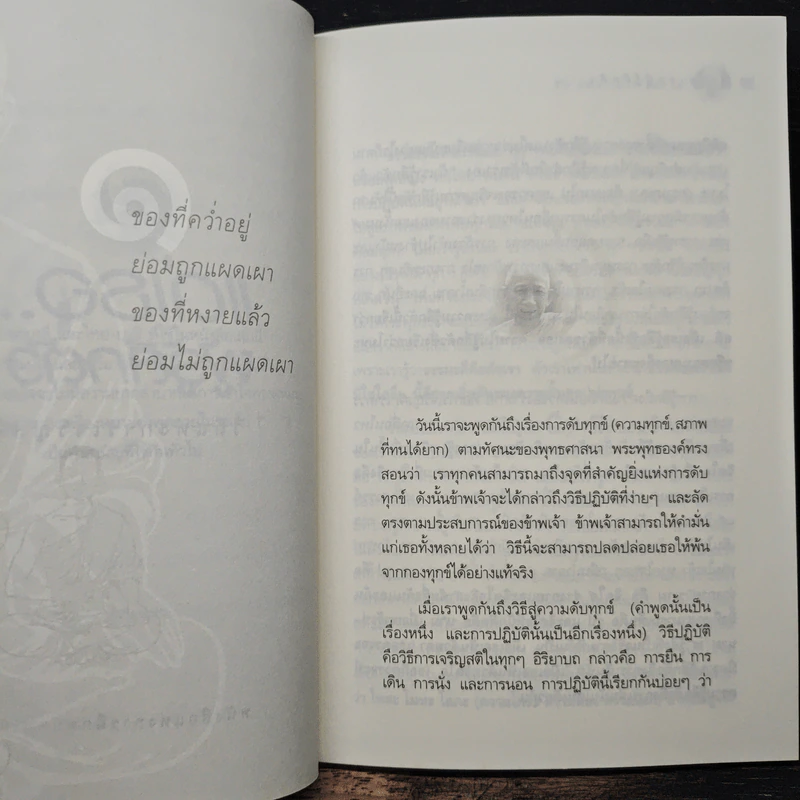 ของที่คว่ำอยู่
ย่อมถูกแผดเผา
ของที่หงายแล้ว
ย่อมไม่ถูกแผดเผา
วันนี้เราจะพูดกันถึงเรื่องการดับทุกข์ (ความทุกข์, สภาพ
ที่ทนได้ยาก) ตามทัศนะของพุทธศาสนา พระพุทธองค์ทรง
สอนว่า เราทุกคนสามารถมาถึงจุดที่สำคัญยิ่งแห่งการดับ
ทุกข์ ดังนั้นข้าพเจ้าจะได้กล่าวถึงวิธีปฏิบัติที่ง่ายๆ และลัด
ตรงตามประสบการณ์ของข้าพเจ้า ข้าพเจ้าสามารถให้คำมั่น
แก่เธอทั้งหลายได้ว่า วิธีนี้จะสามารถปลดปล่อยเธอให้พ้น
จากกองทุกข์ได้อย่างแท้จริง
เมื่อเราพูดกันถึงวิธีสู่ความดับทุกข์ (คำพูดนั้นเป็น
เรื่องหนึ่ง และการปฏิบัตินั้นเป็นอีกเรื่องหนึ่ง) วิธีปฏิบัติ
คือวิธีการเจริญสติในทุกๆ อิริยาบถ กล่าวคือ การยืน การ
เดิน การนั่ง และการนอน การปฏิบัตินี้เรียกกันบ่อยๆ ว่า